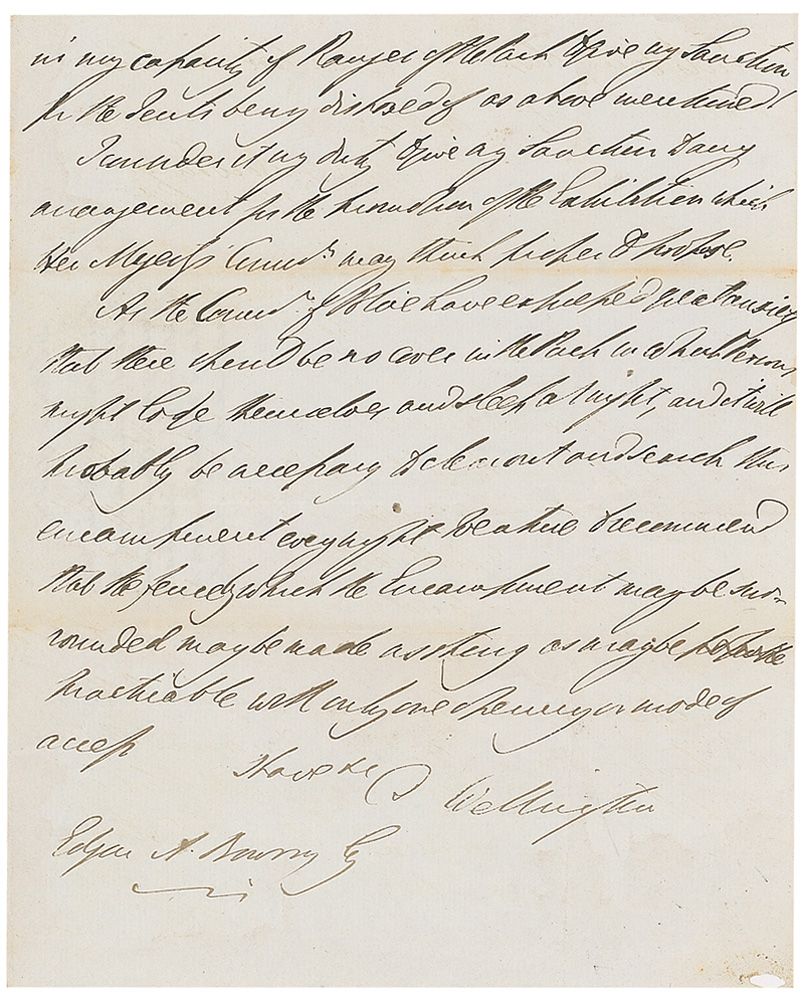 in my capacity of Ranger of the Park to give my Sanction
for the Tents being disposed of as above mentioned
I consider it my duty to give my Sanction to any
arrangement for the promotion of the Exhibition which
Her Majesty's Commrs may think proper to propose.
As the Commrs of Police have expressed great anxiety
that there should be no cover in the Park in which Persons
might lodge themselves and sleep at night, and it will
probably be necessary to clear out and search this
encampment every night I venture to recommend
that the fence by which the Encampment may be sur-
rounded may be made as strong as may be
practicable with only one opening or mode of
access
I have &c
Wellington
Edgar A. Bowring Esq